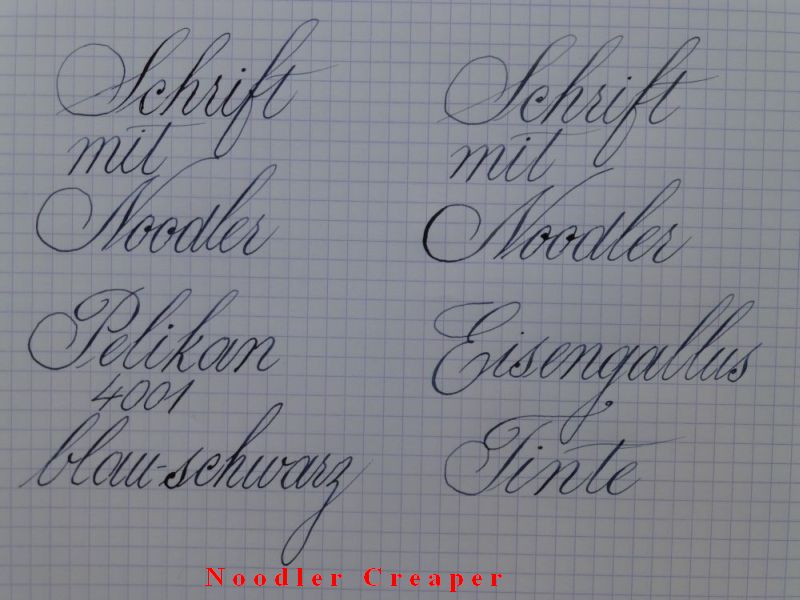 Schrift
mit
Noodler
Pelikan
4001
blau-schwarz
Schrift
mit
Noodler
Eisengallus
Tinte
Noodler Creaper